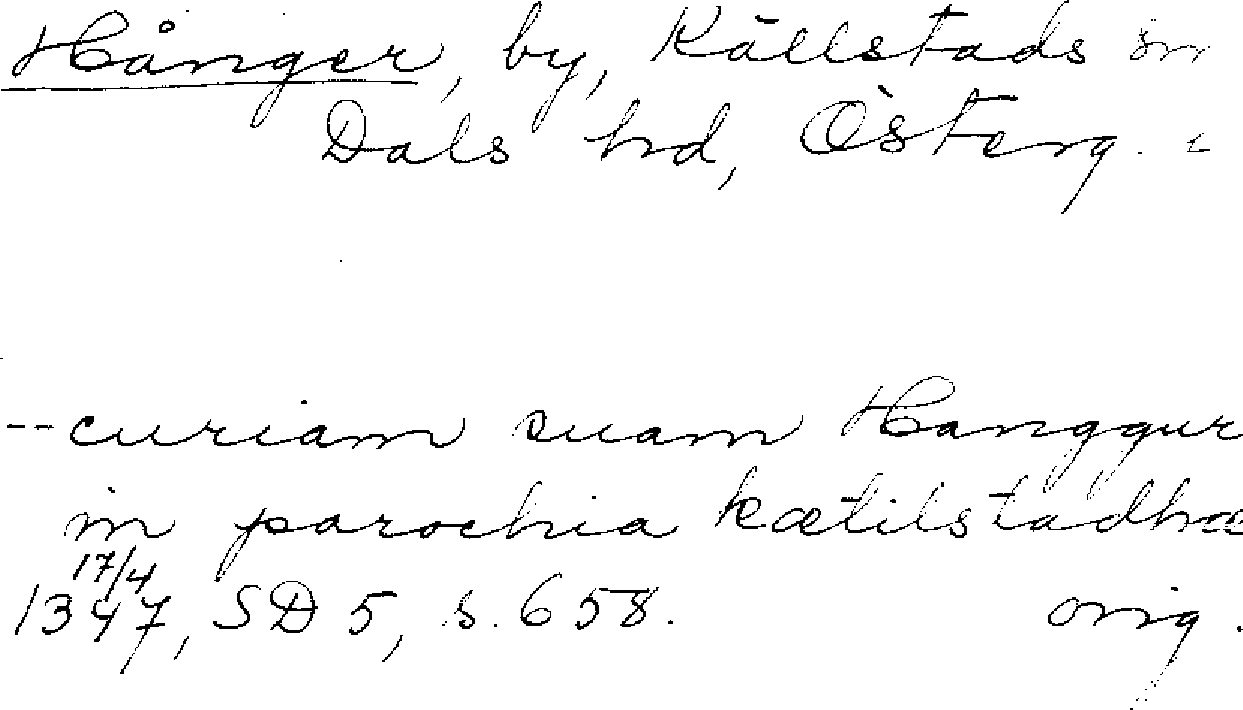 Hånger, by, Källstads sn
Dals hd, Österg.
-- curiam suam Hanggur
in parochia kætilstadhæ
17/4
1347, SD 5, s. 658. orig.